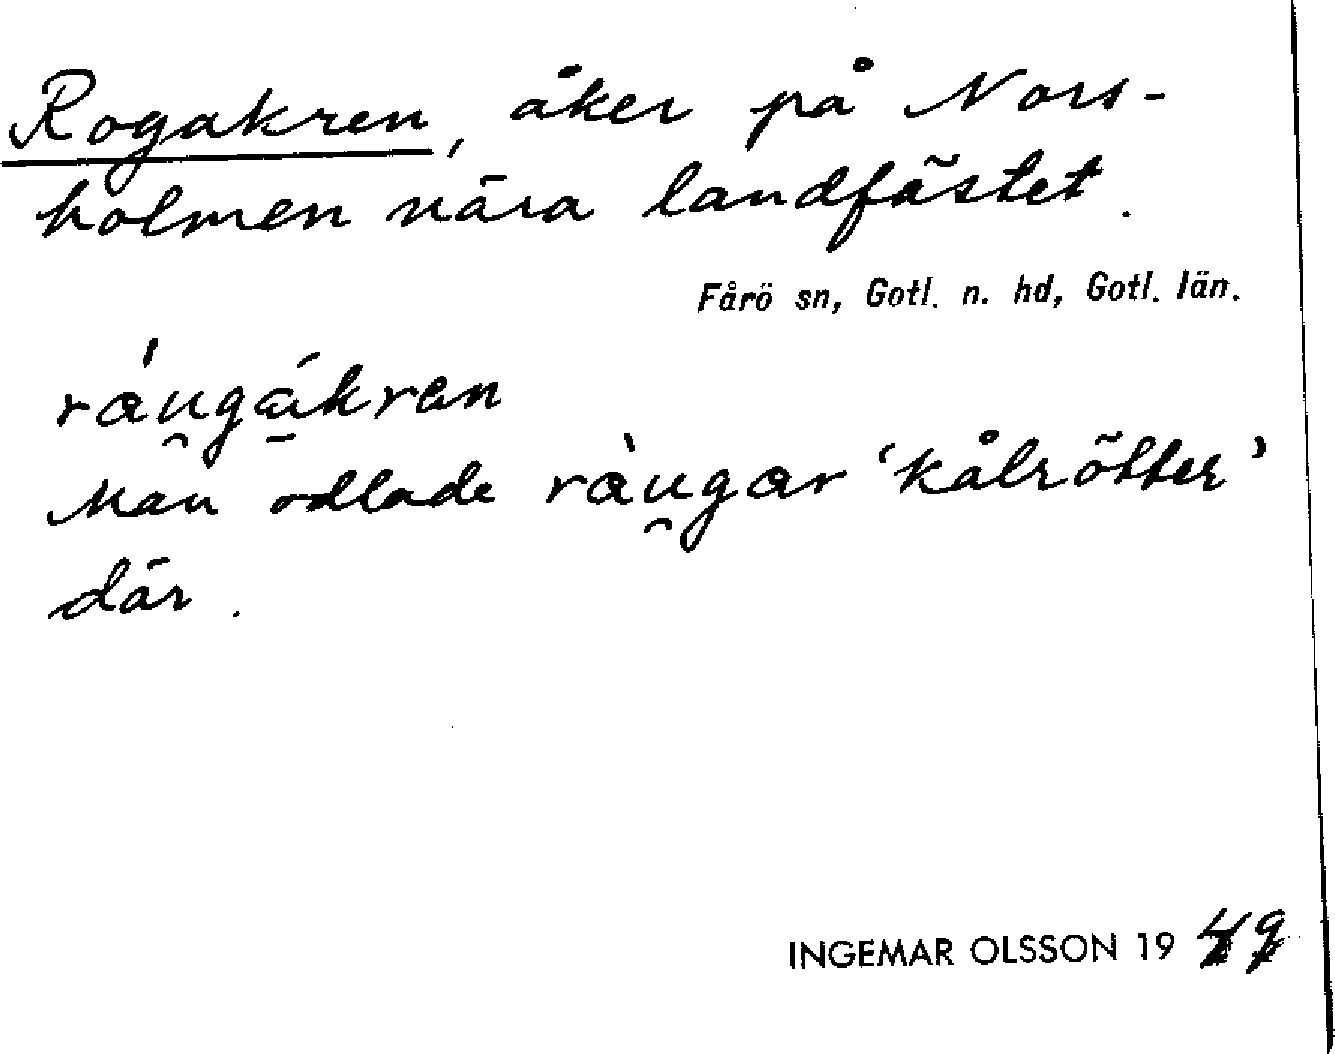 Rogakren, åker på Nors-
holmen nära landfästet.
Fårö sn, Gotl. n. hd, Gotl. län.
ráu̯gák̄ren
Man odlade ràu̯gar 'kålrötter'
där.
INGEMAR OLSSON 19 49